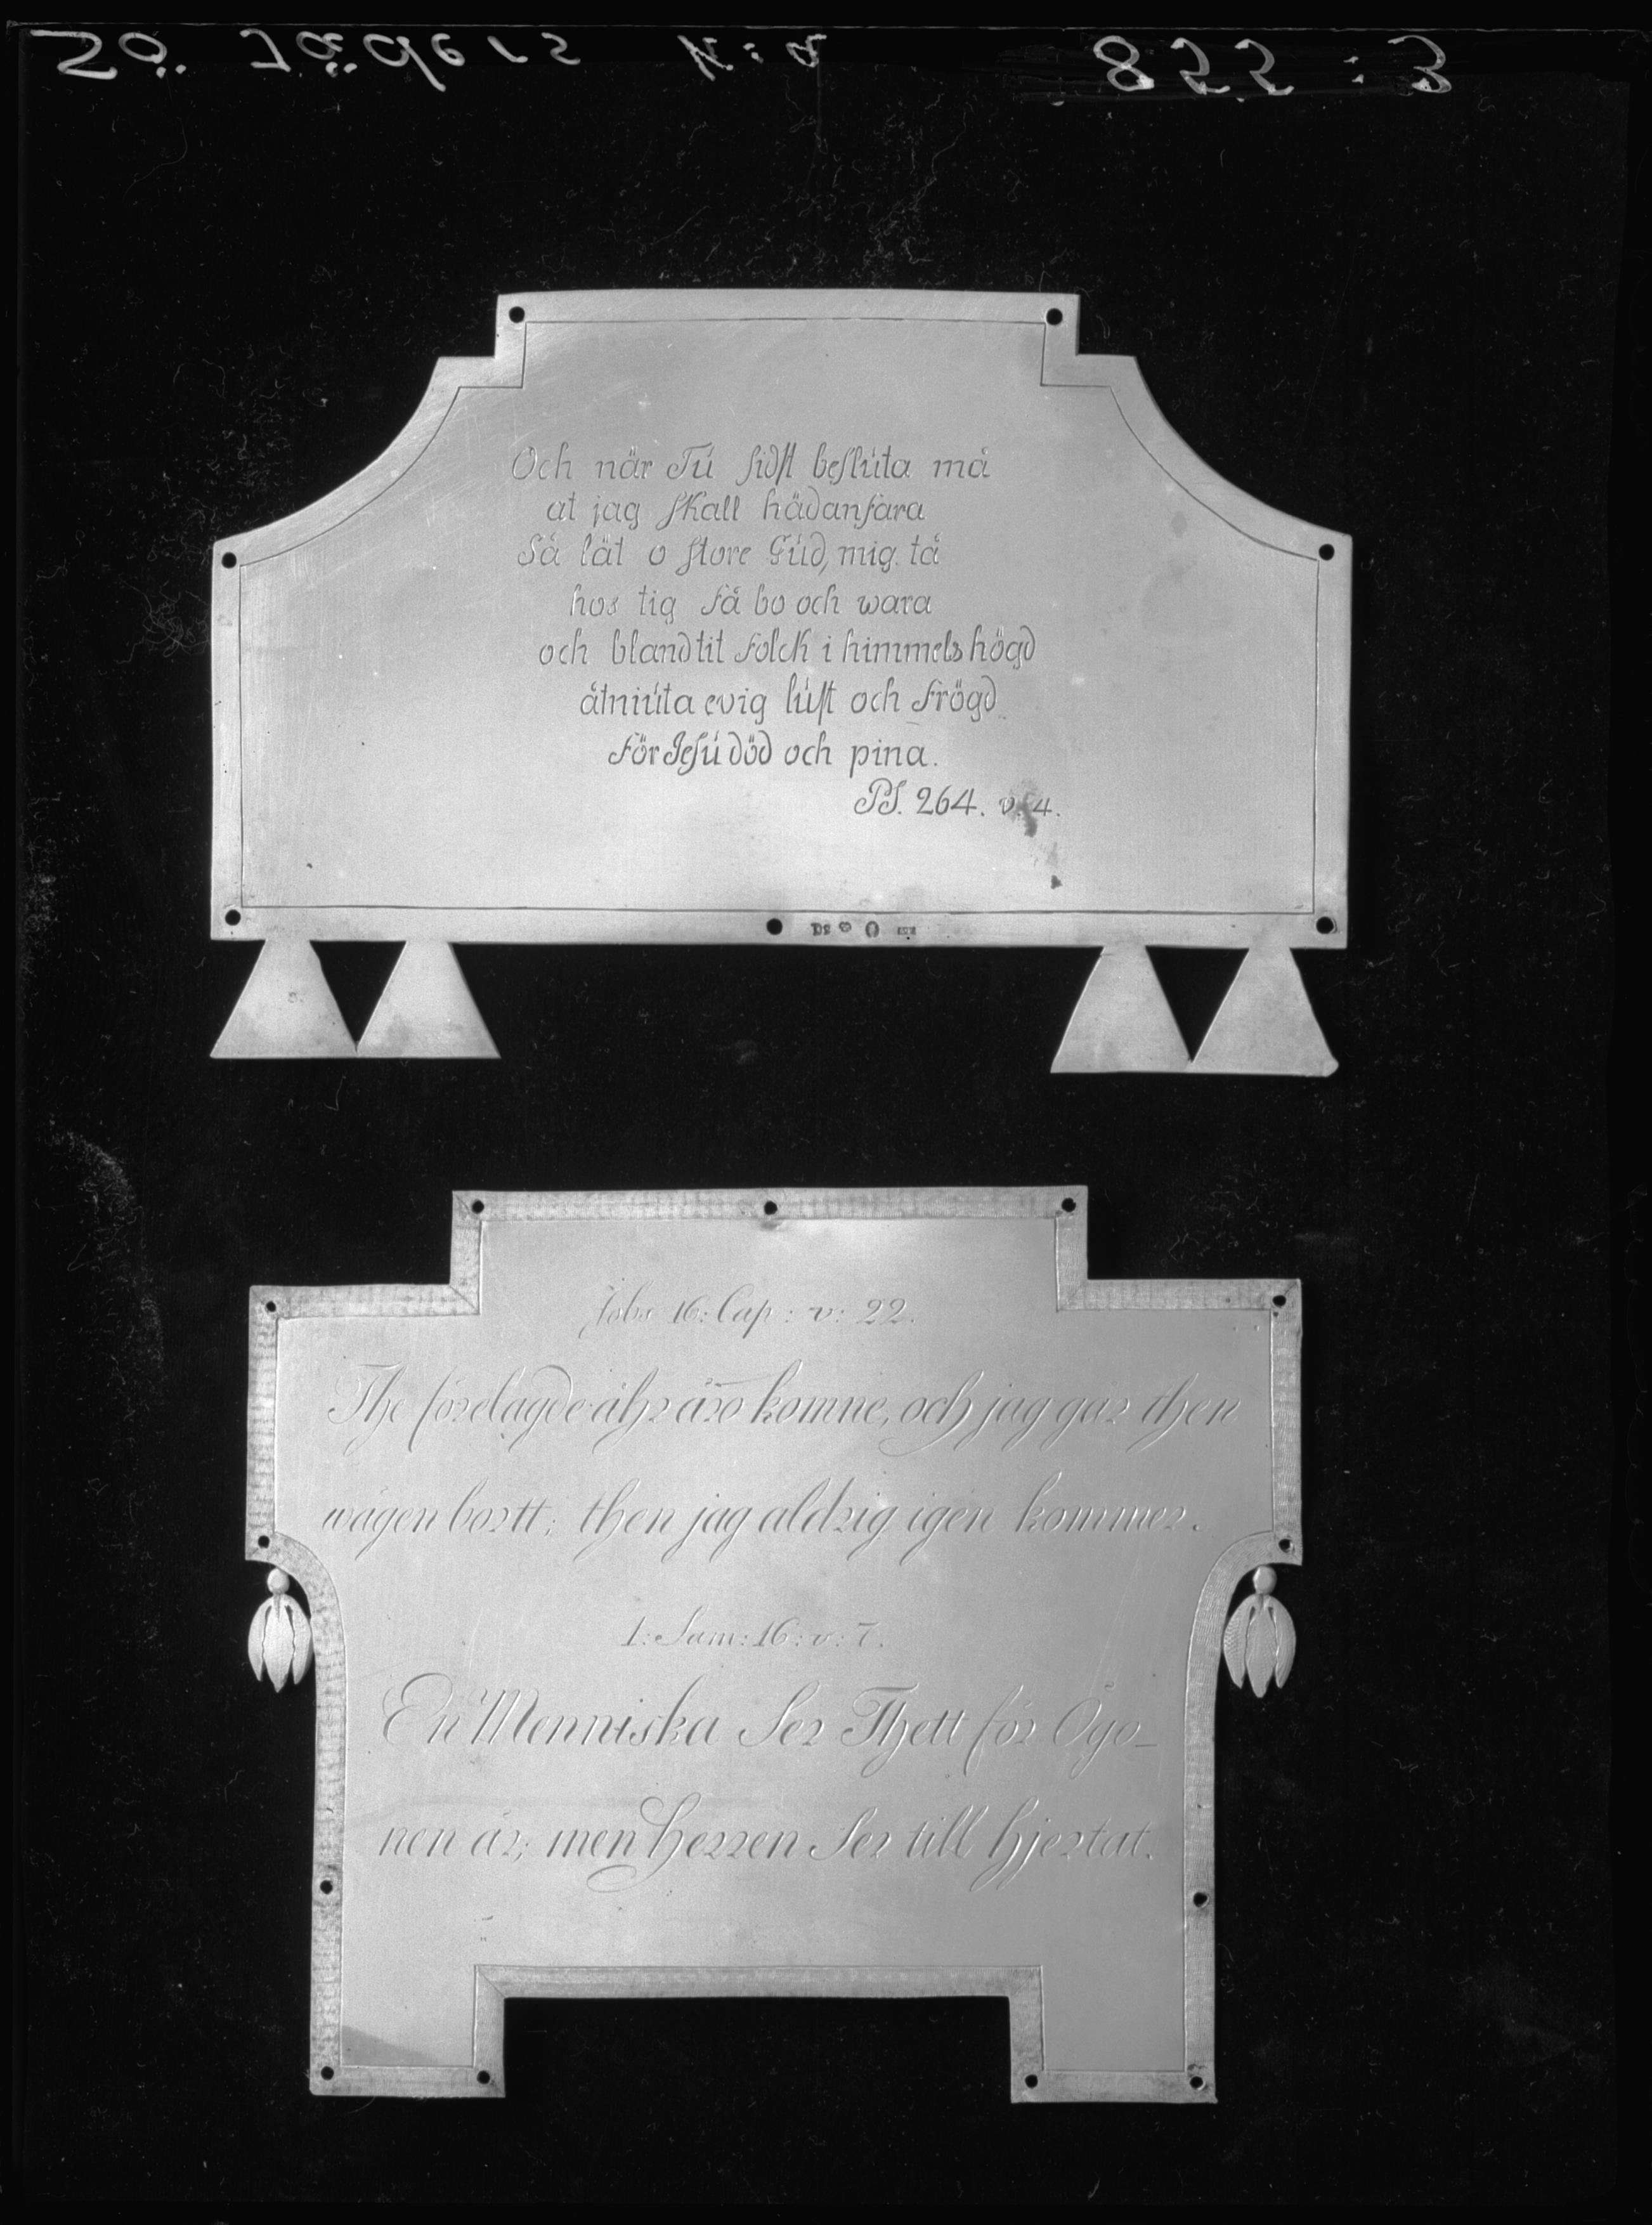 Sö. Jäders k:a 855:3
Och när Tú sidst beslúta må
at jag skall hädanfara
Så lät o store Gúd, mig. tå
hos tig få bo och wara
och bland tit folck i himmels högd
åtniúta evig lúst och frögd
för Jesú död och pina.
PS. 264. v. 4.
Jobs 16: Cap: v: 22.
The förelagde åhr äro komne, och jag går then
wägen bortt; then jag aldrig igen kommer.
1: Sam: 16: v: 7.
En Menniska Ser Thett för Ögo-
nen är; men Herren Ser till hjertat.